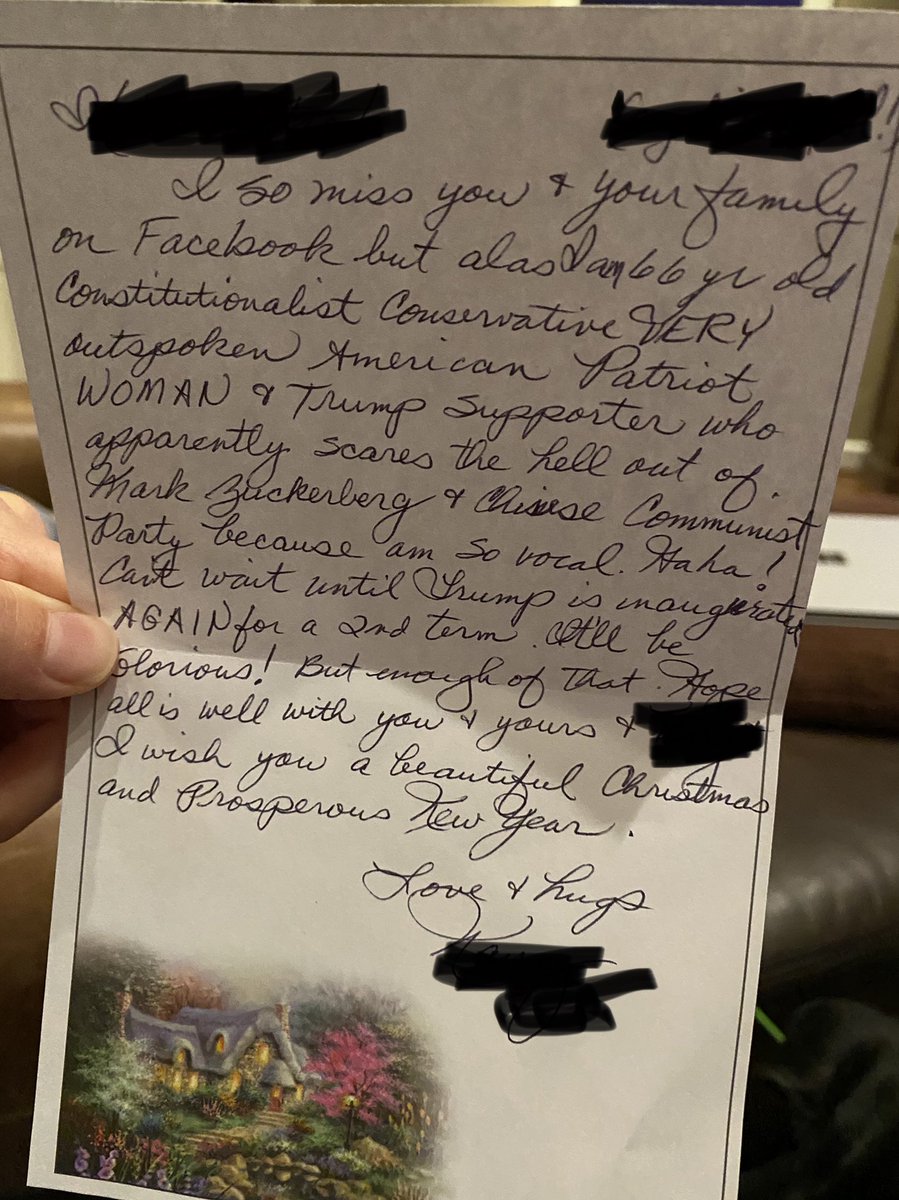 I so miss you & your family
on Facebook but alas I am 66 yr old
Constitutionalist Conservative VERY
outspoken American Patriot
WOMAN & Trump Supporter who
apparently scares the hell out of
Mark Zuckerberg & Chinese Communist
Party because am so vocal. Haha!
Can't wait until Trump is inaugurated
AGAIN for a 2nd term. It'll be
Glorious! But enough of that. Hope
all is well with you & yours &
I wish you a beautiful Christmas
and Prosperous New Year.
Love & hugs